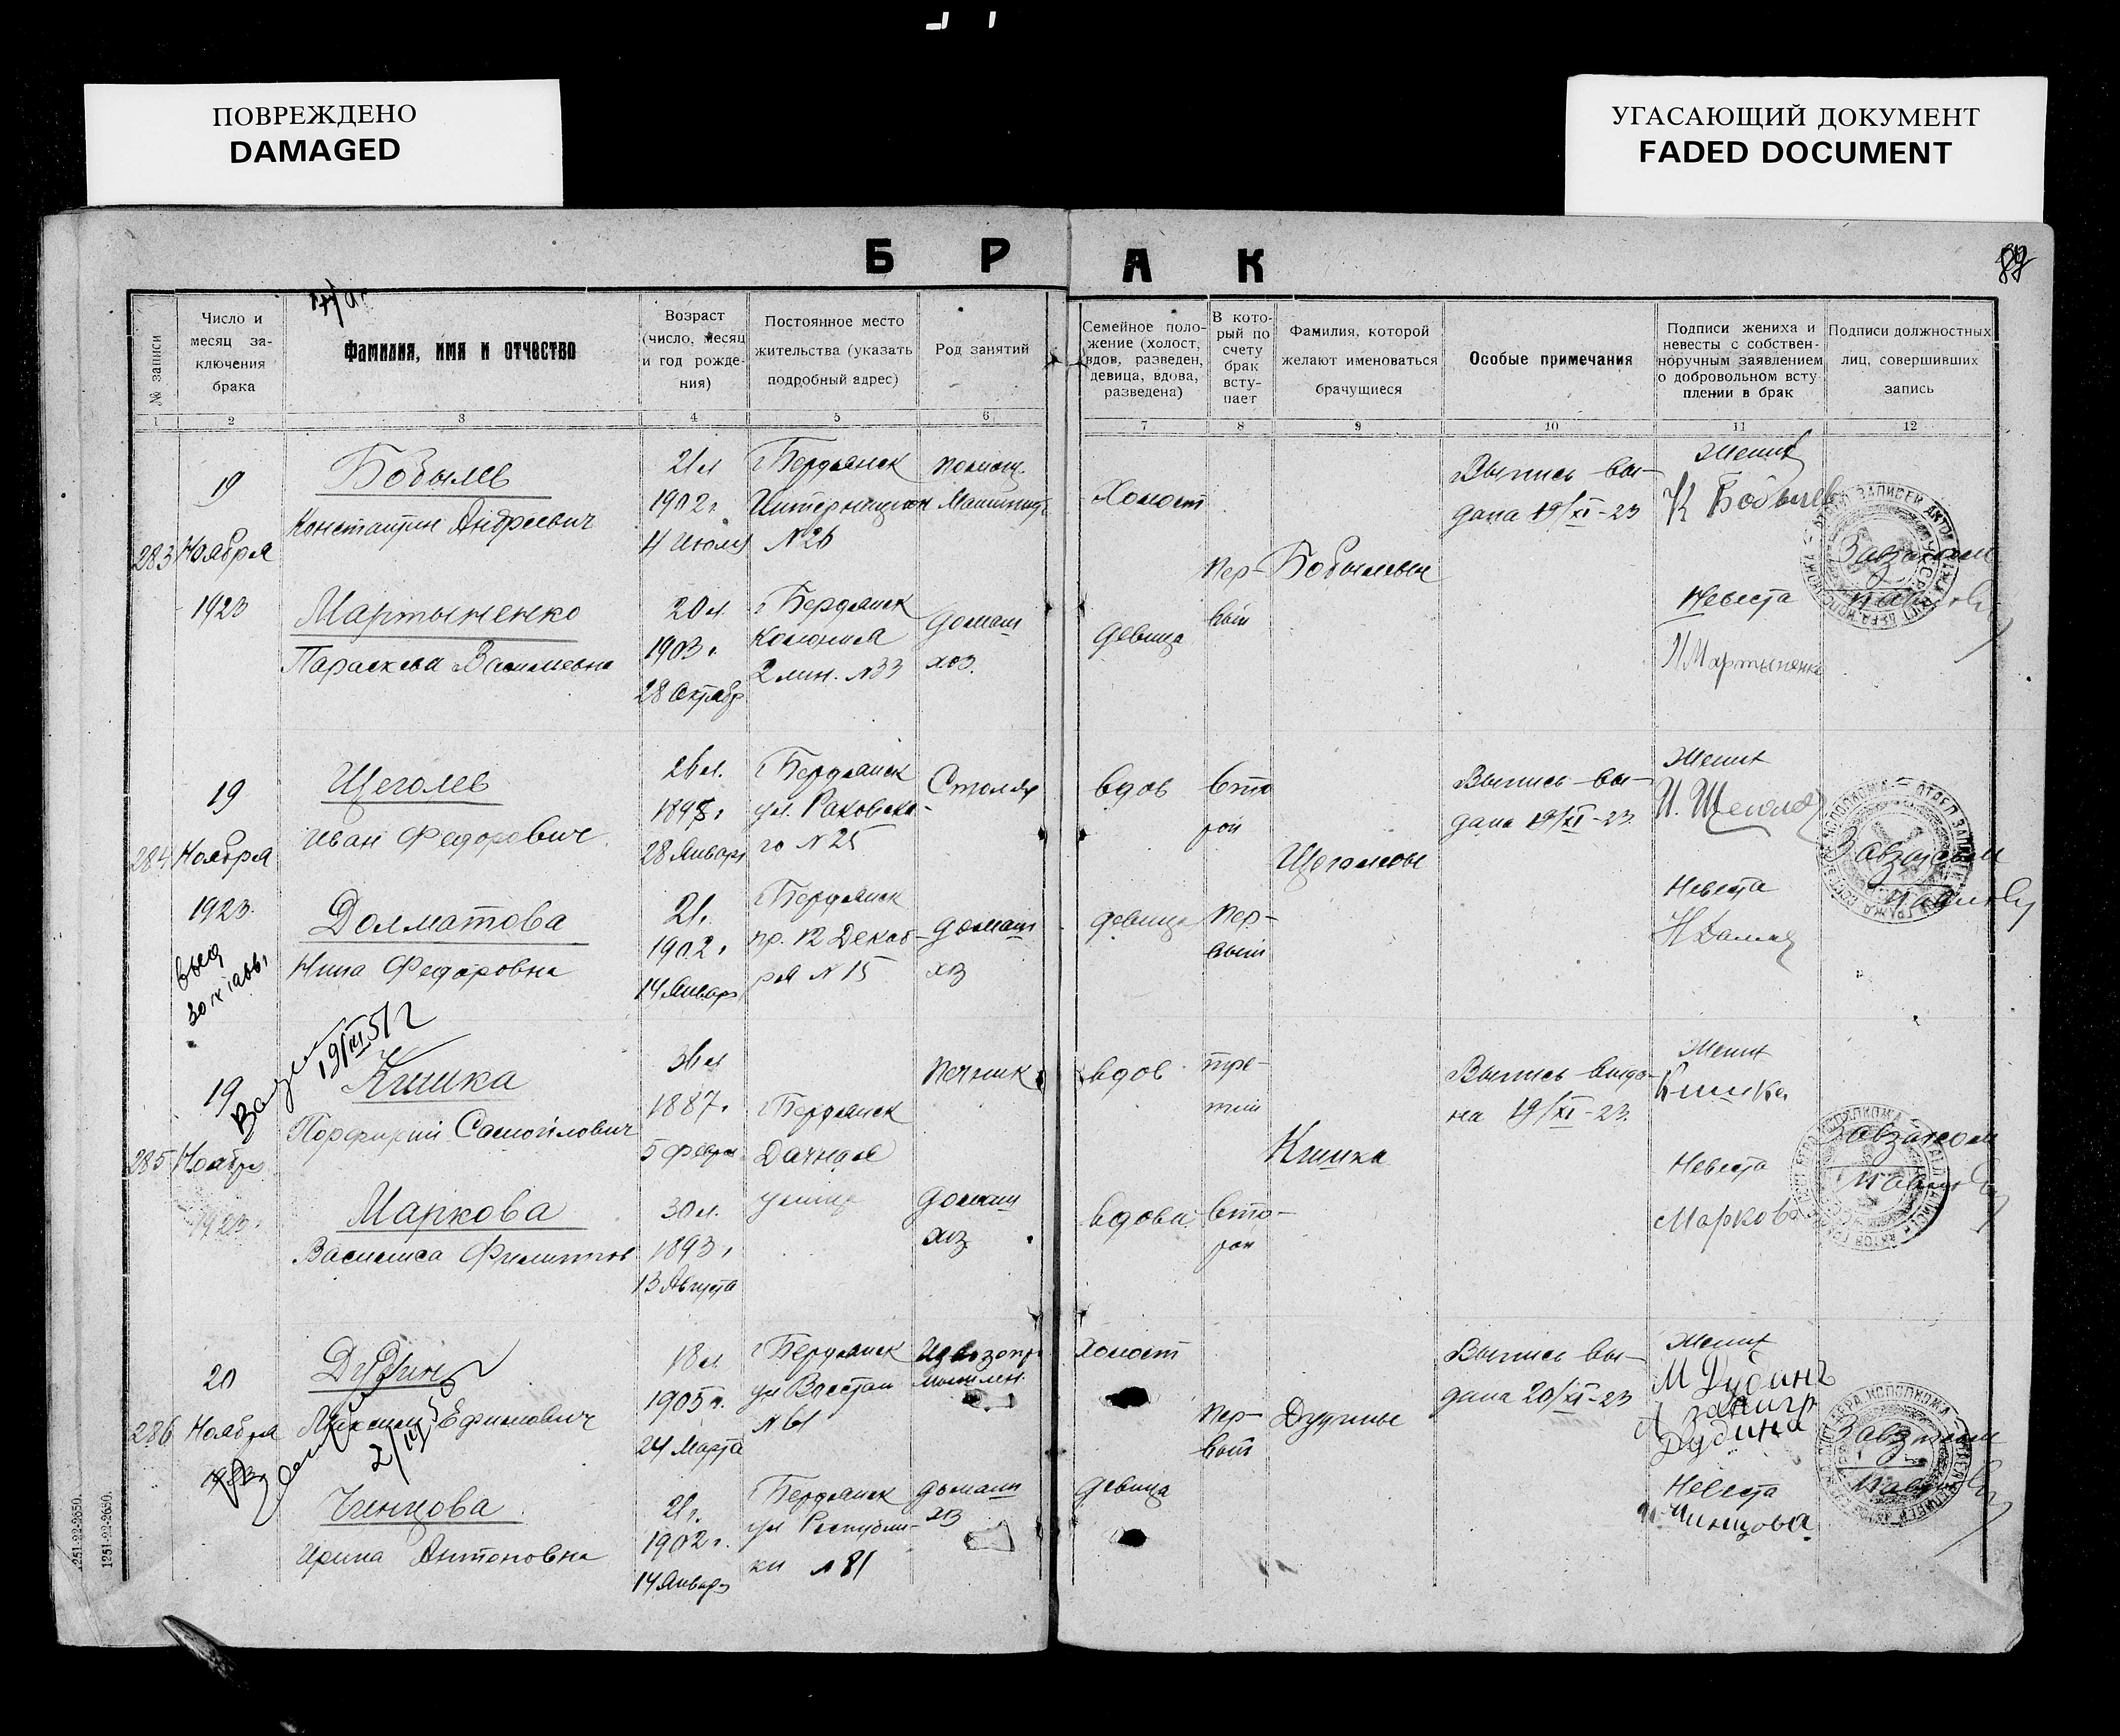 ПОВРЕЖДЕНО
DAMAGED
УГАСАЮЩИЙ ДОКУМЕНТ
FADED DOCUMENT
Б Р А К
№ записи
Число и месяц за-ключения брака
Фамилия, имя и отчество
Возраст (число, месяц и год рожде-ния)
Постоянное место жительства (указать подробный адрес)
Род занятий
Семейное поло-жение (холост, вдов, разведен, девица, вдова, разведена)
В кото-рый по счету брак всту-пает
Фамилия, которой желают именоваться брачущиеся
Особые примечания
Подписи жениха и невесты с собствен-норучным заявлением о добровольном всту плении в брак
Подписи должностных лиц, совершивших запись
1 2 3 4 5 6 7 8 9 10 11 12
283
19
Ноября
1923
Бобылев
Константин Андреевич
21 л
1902 г
4 Июля
г Бердянск
Интернацион
№ 26
помощ.
Машинис
Холост
Пер-
вый
Бобылевы
Выпись вы-
дана 19/XI-23
Жених
К Бобылев
Завзагсом
Мартыненко
Параскева Васильевна
20 л
1903 г
28 Октябр
г Бердянск
Колония
2 лин. № 33
домаш
хоз.
девица
Невеста
П Мартыненко
284
19
Ноября
1923
Щеголев
Иван Федорович
26 л.
28 Января
г Бердянск
ул. Раковско-
го № 25
Столяр
вдов
вто
рой
Щеголевы
Выпись вы-
дана 19/XI-23.
Жених
Завзагсом
Долматова
Нина Федоровна
21 г
1902 г
14 Январ
г Бердянск
пр. 12 Декаб-
ря № 15
домаш
хоз
девица
Пер-
вый
Невеста
285
19
Ноябр
1923
19/XI 51 г
Кишка
Порфирий Самойлович
36 л
1887 г
5 Февр
г Бердянск
Дачная
улица
Печник
вдов
тре-
тий
Кишка
Выпись выда-
на 19/XI-23.
Жених
Кишка
Завзагсом
Маркова
Василиса Филиппов
30 л.
1893 г
13 Августа
домаш
хоз
вдова
вто-
рой
Невеста
Маркова
286
20
Ноября
Дудин
Максим Ефимович
18 л
1905 г.
24 Марта
г Бердянск
ул Восстан
№ 61
холост
Пер-
вый
Дудины
Выпись вы-
дана 20/XI-23
Жених
М Дудинъ
Дудина
Завзагсом
Чинцова
Ирина Антоновна
21 г
1902 г
14 Январ
г Бердянск
ул Республи-
ки № 81
домаш
хоз
девица
Невеста
И Чинцова
1251-22-2650.
1251-22-2650.